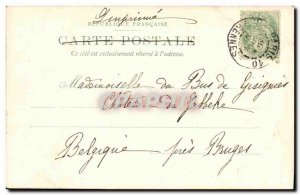 Imprimé
RÉPUBLIQUE FRANÇAISE
CARTE POSTALE
Ce côté est exclusivement réservé à l'adresse.
Mademoiselle du Bus de Gisignies
Château de
Belgique près Bruges